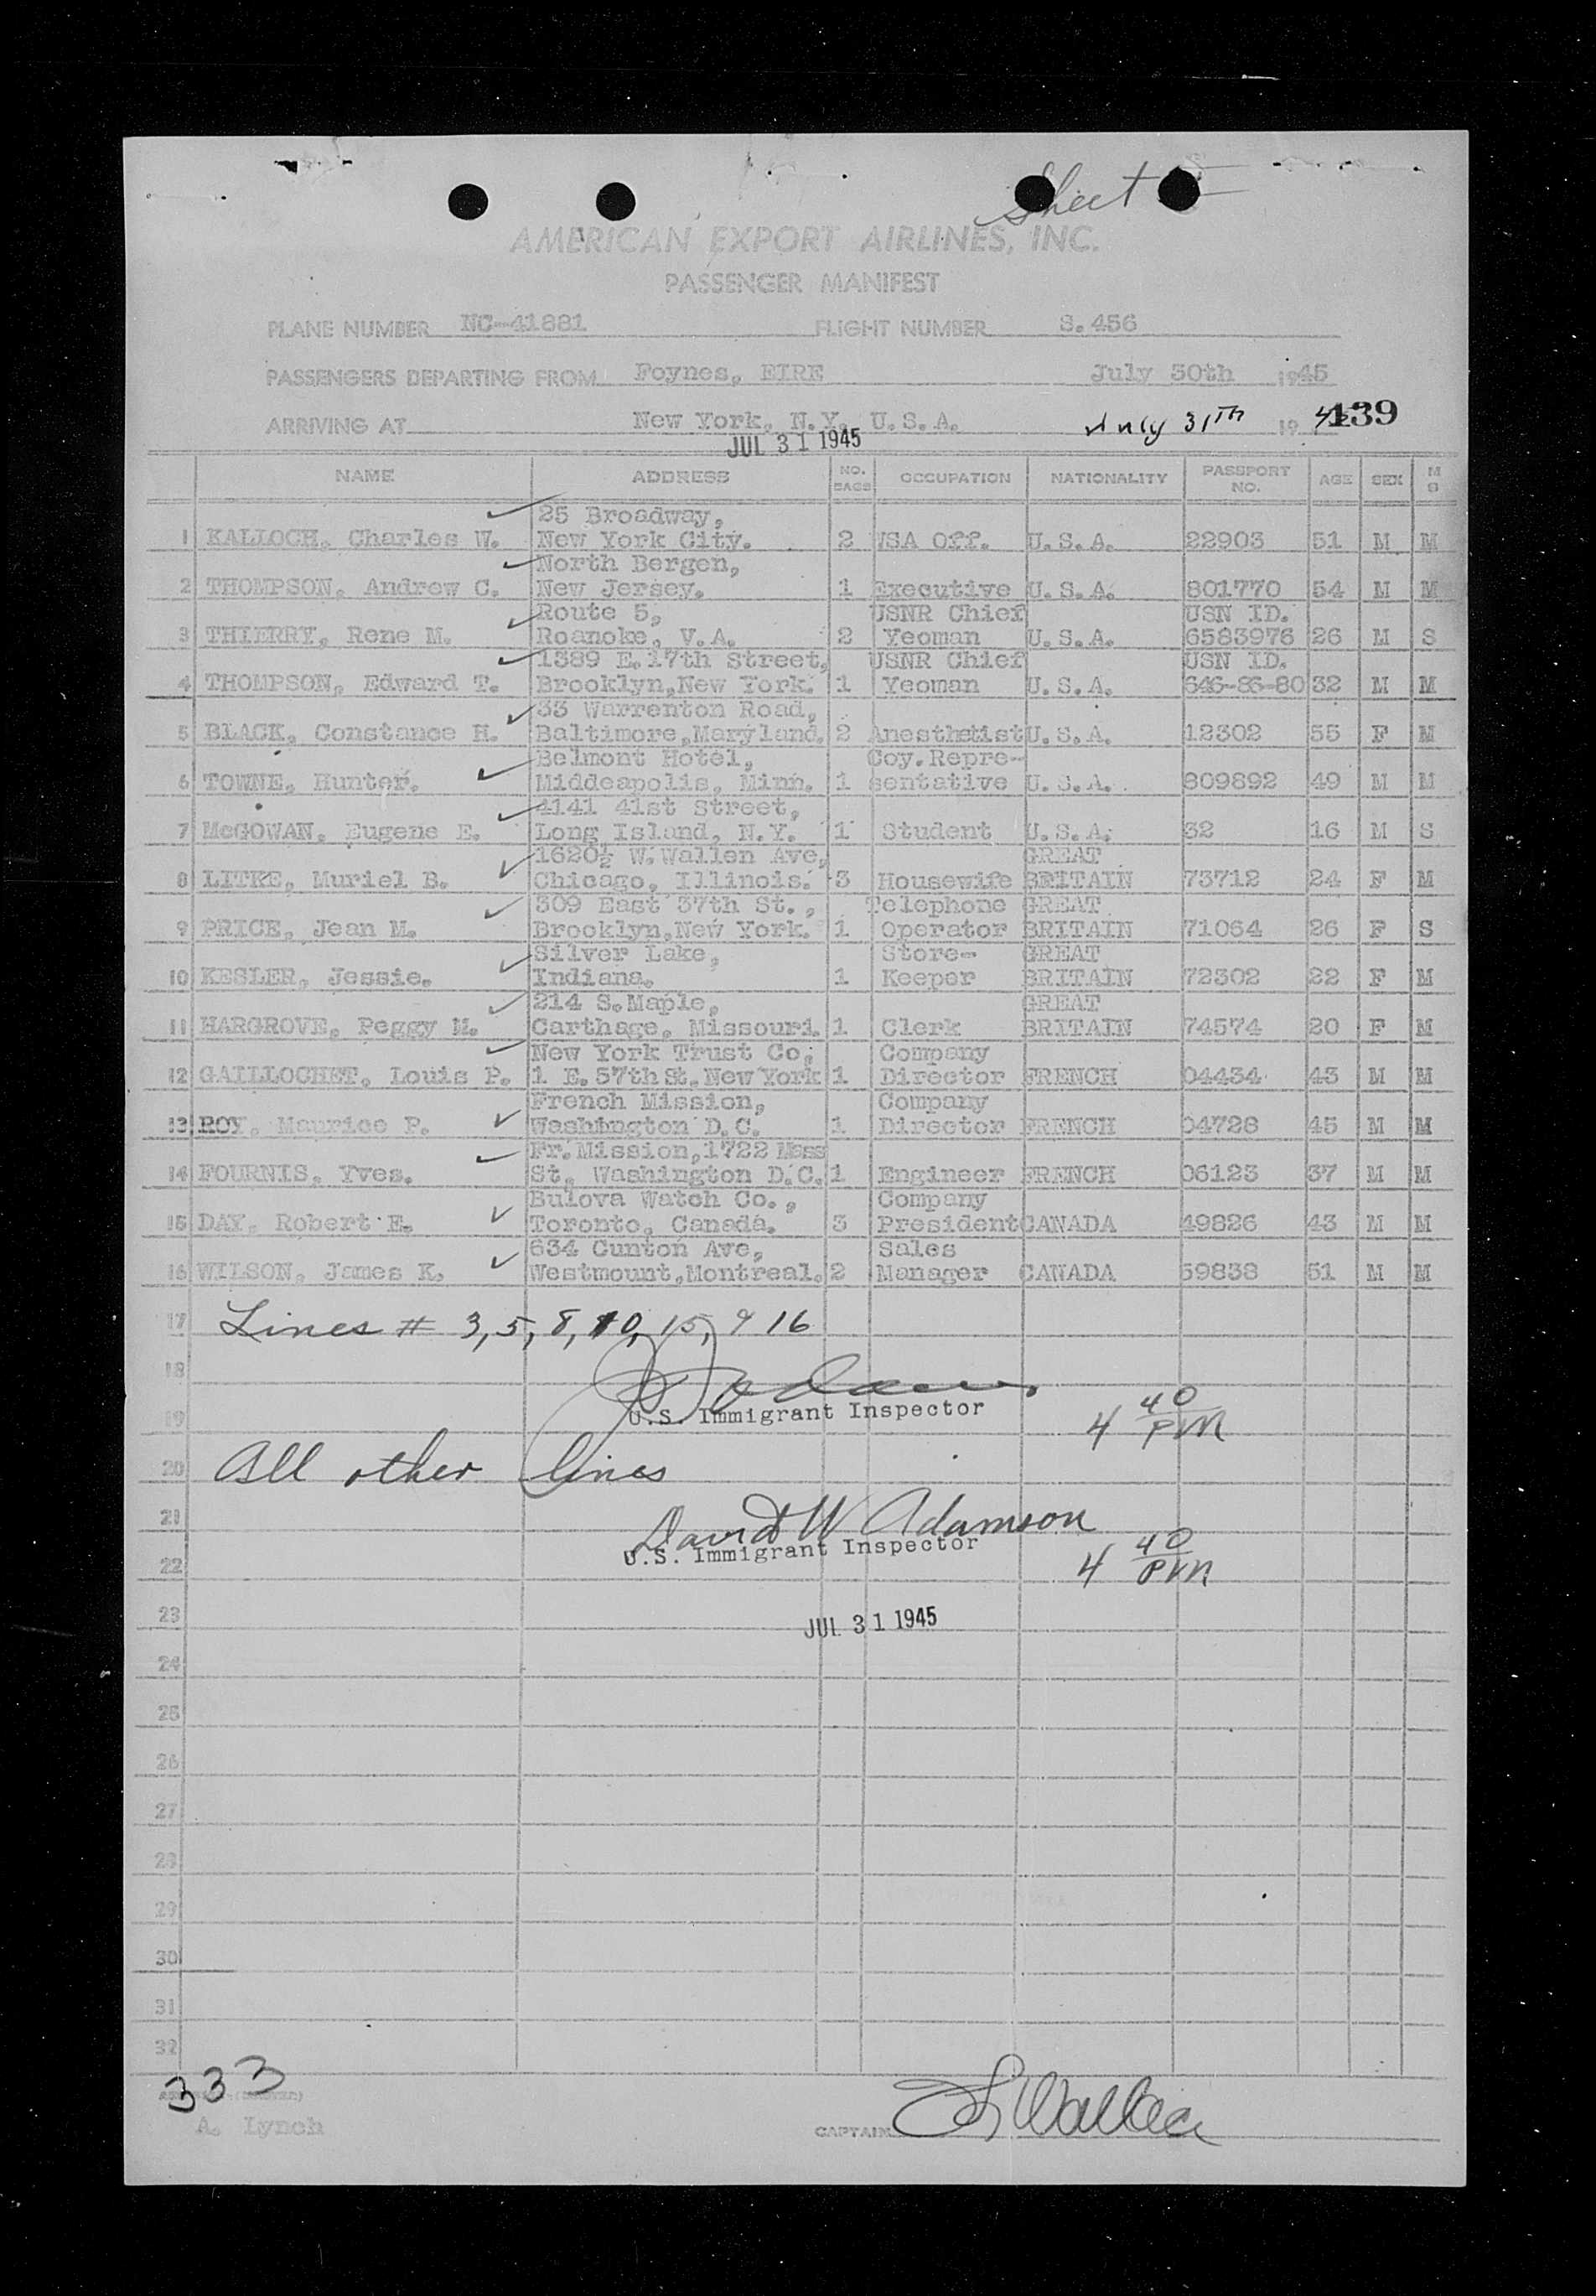 Sheet
AMERICAN EXPORT AIRLINES, INC.
PASSENGER MANIFEST
PLANE NUMBER NC-41881 FLIGHT NUMBER S.456
PASSENGERS DEPARTING FROM Foynes, EIRE July 30th 1945
ARRIVING AT New York, N.Y. U.S.A. July 31th 19 45 139
JUL 31 1945
NAME ADDRESS NO. BAGS OCCUPATION NATIONALITY PASSPORT NO. AGE SEX M S
25 Broadway,
1 KALLOCH, Charles W. New York City. 2 WSA Off. U.S.A. 22903 51 M M
North Bergen,
2 THOMPSON, Andrew C. New Jersey. 1 Executive U.S.A. 801770 54 M M
Route 5, USNR Chief USN ID.
3 THIERRY, Rene M. Roanoke, V.A. 2 Yeoman U.S.A. 6583976 26 M S
1389 E.17th Street, USNR Chief USN ID.
4 THOMPSON, Edward T. Brooklyn,New York. 1 Yeoman U.S.A. 646-86-80 32 M M
33 Warrenton Road,
5 BLACK, Constance H. Baltimore,Maryland. 2 Anesthetist U.S.A. 12302 55 F M
Belmont Hotel, Coy.Repre-
6 TOWNE, Hunter. Middeapolis, Minn. 1 sentative U.S.A. 809892 49 M M
4141 41st Street,
7 McGOWAN, Eugene E. Long Island, N.Y. 1 Student U.S.A. 32 16 M S
1620½ W.Wallen Ave, GREAT
8 LITKE, Muriel B. Chicago, Illinois. 3 Housewife BRITAIN 73712 24 F M
309 East 37th St., Telephone GREAT
9 PRICE, Jean M. Brooklyn,New York. 1 Operator BRITAIN 71064 26 F S
Silver Lake, Store- GREAT
10 KESLER, Jessie. Indiana. 1 Keeper BRITAIN 72302 22 F M
214 S.Maple, GREAT
11 HARGROVE, Peggy M. Carthage, Missouri. 1 Clerk BRITAIN 74574 20 F M
New York Trust Co, Company
12 GAILLOCHET, Louis P. 1 E.57th St.New York 1 Director FRENCH 04434 43 M M
French Mission, Company
13 ROY, Maurice P. Washington D.C. 1 Director FRENCH 04728 45 M M
Fr.Mission,1722 Mass
14 FOURNIS, Yves. St, Washington D.C. 1 Engineer FRENCH 06123 37 M M
Bulova Watch Co., Company
15 DAY, Robert E. Toronto, Canada. 3 President CANADA 49826 43 M M
634 Cunton Ave, Sales
16 WILSON, James K. Westmount,Montreal. 2 Manager CANADA 59838 51 M M
17 Lines # 3, 5, 8, 10, 15, & 16
18
U.S. Immigrant Inspector
19 4 40 PM
20 All other lines
21 David W Adamson
U.S. Immigrant Inspector
22 4 40 PM
23 JUL 31 1945
24
25
26
27
28
29
30
31
32
333
A. Lynch
CAPTAIN Wallace